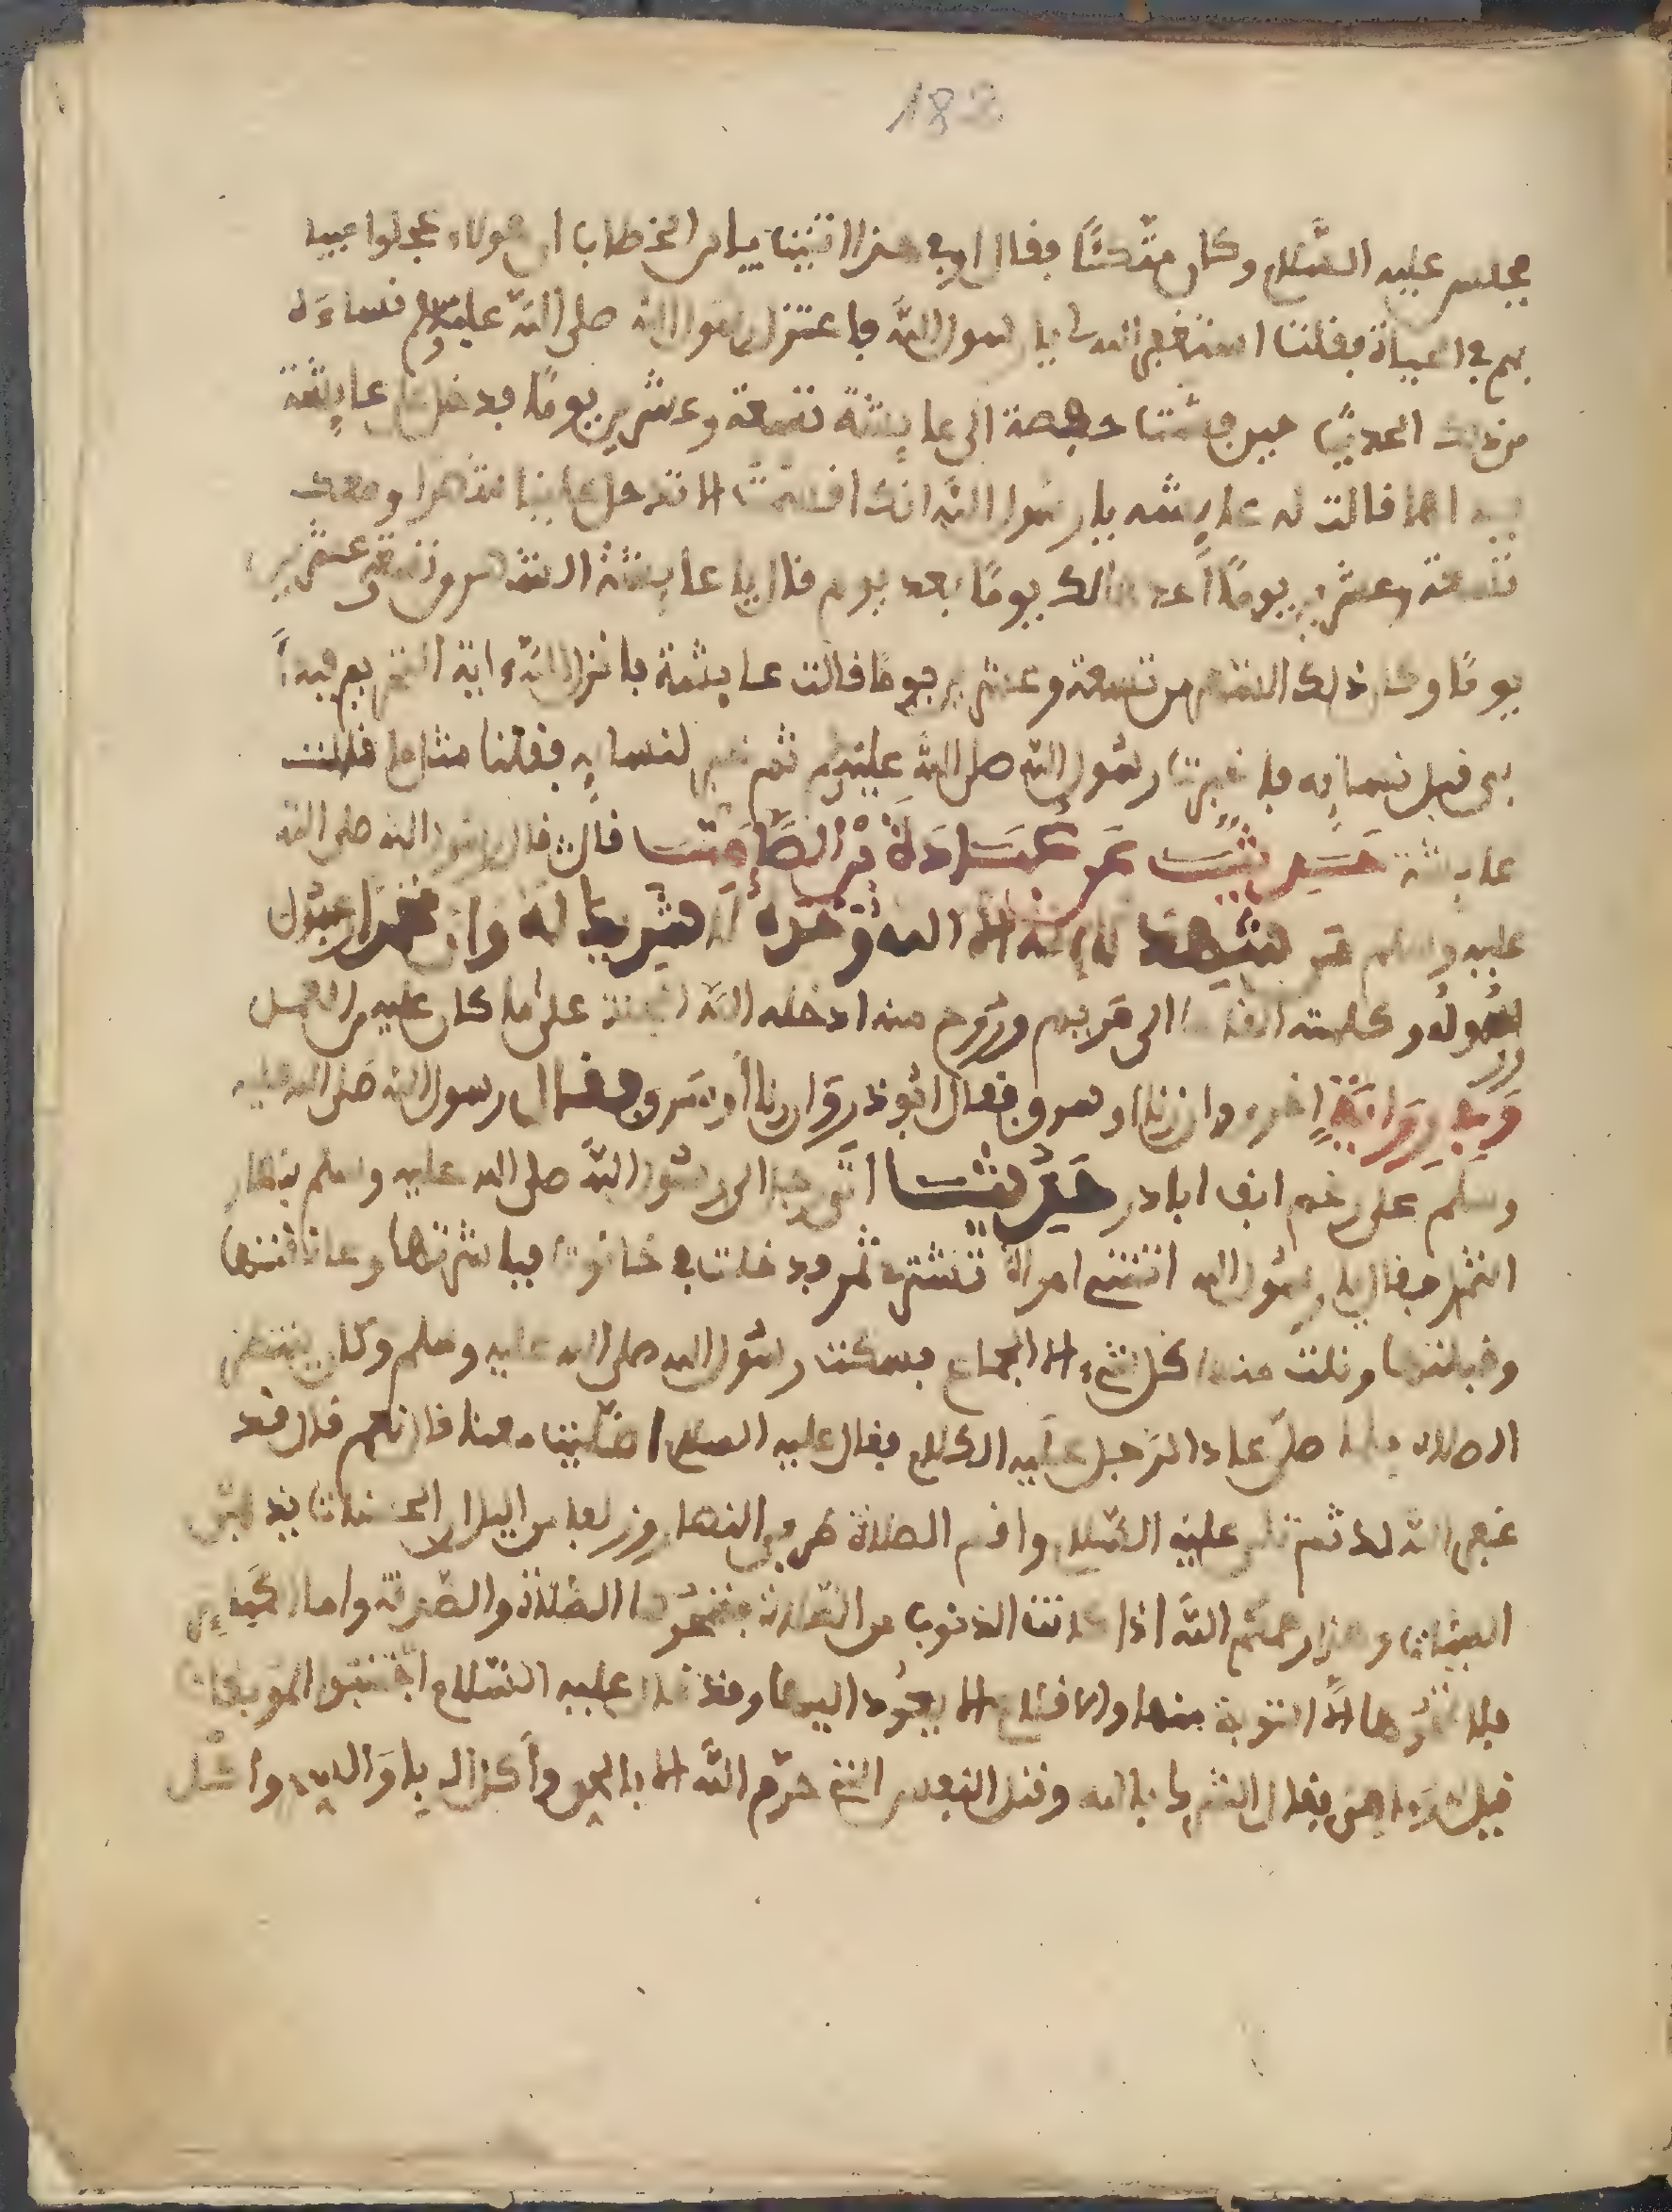 182
فجلس عليه السلام وكان متكئًا فقال اوفي هذا انت يا ابن الخطاب ان هولاء عجلوا طيبا
تهم في الحياة فقلت استغفر الله لي يا رسول الله فاعتزل رسول الله صلى الله عليه وسلم نساءه
من ذلك الحديث حين افشته حفصة الى عايشة تسعة وعشرين يومًا فدخل على عايشة
فبداها فقالت له عايشه يا رسول الله انك اقسمت الا تدخل علينا شهرا ومعك
تسعة وعشرين يومًا اعد ذالك يومًا بعد يوم قال يا عايشة الشهر تسعة وعشرين
يومًا وكان ذلك الشهر من تسعة وعشرين يوما قالت عايشة فانزل الله ءاية التخيير فبدأ
بي قبل نسايه فاخبرت رسول الله صلى الله عليه وسلم ثم خير لنسايه فقلنا مثل ما قالت
عايشة حديث عن عبادة بن الصامت قال قال رسول الله صلى الله
عليه وسلم من شهد ان لا اله الا الله وحده لا شريك له وان محمدا عبده
رسوله وكلمته القاها الى مريم وروح منه ادخله الله الجنة على ما كان عليه من العمل
وفي رواية اخرى وان زنا او سرق فقال ابو ذر وان زنا او سرق فقال رسول الله صلى الله عليه
وسلم على رغم انف ابا ذر حديث اتى رجل الى رسول الله صلى الله عليه وسلم بتمار
التمر فقال يا رسول الله اتتني امراة تشتري تمر فدخلت في حانوت فباشرتها وعانقتها
وقبلتها ونلت منها كل شيء الا الجماع فسكت رسول الله صلى الله عليه وسلم وكان ينتظر
الصلاة فلما صلى عاد الرجل عليه الكلام فقال عليه السلام اصليت معنا قال نعم قال قد
غفر الله لك ثم تلى عليه السلام واقم الصلاة طرفي النهار وزلفا من اليل ان الحسنات يذهبن
السيئات وهذا رحمكم الله اذا كانت الذنوب من الصغائر فتكفرها الصلاة والصدقة واما الكبائر
فلا تكفرها الا التوبة منها والاقلاع الا يعود اليها وقد قال عليه السلام اجتنبوا الموبقات
قيل وما هن فقال الشرك بالله وقتل النفس التي حرم الله الا بالحق وأكل الربا واكل